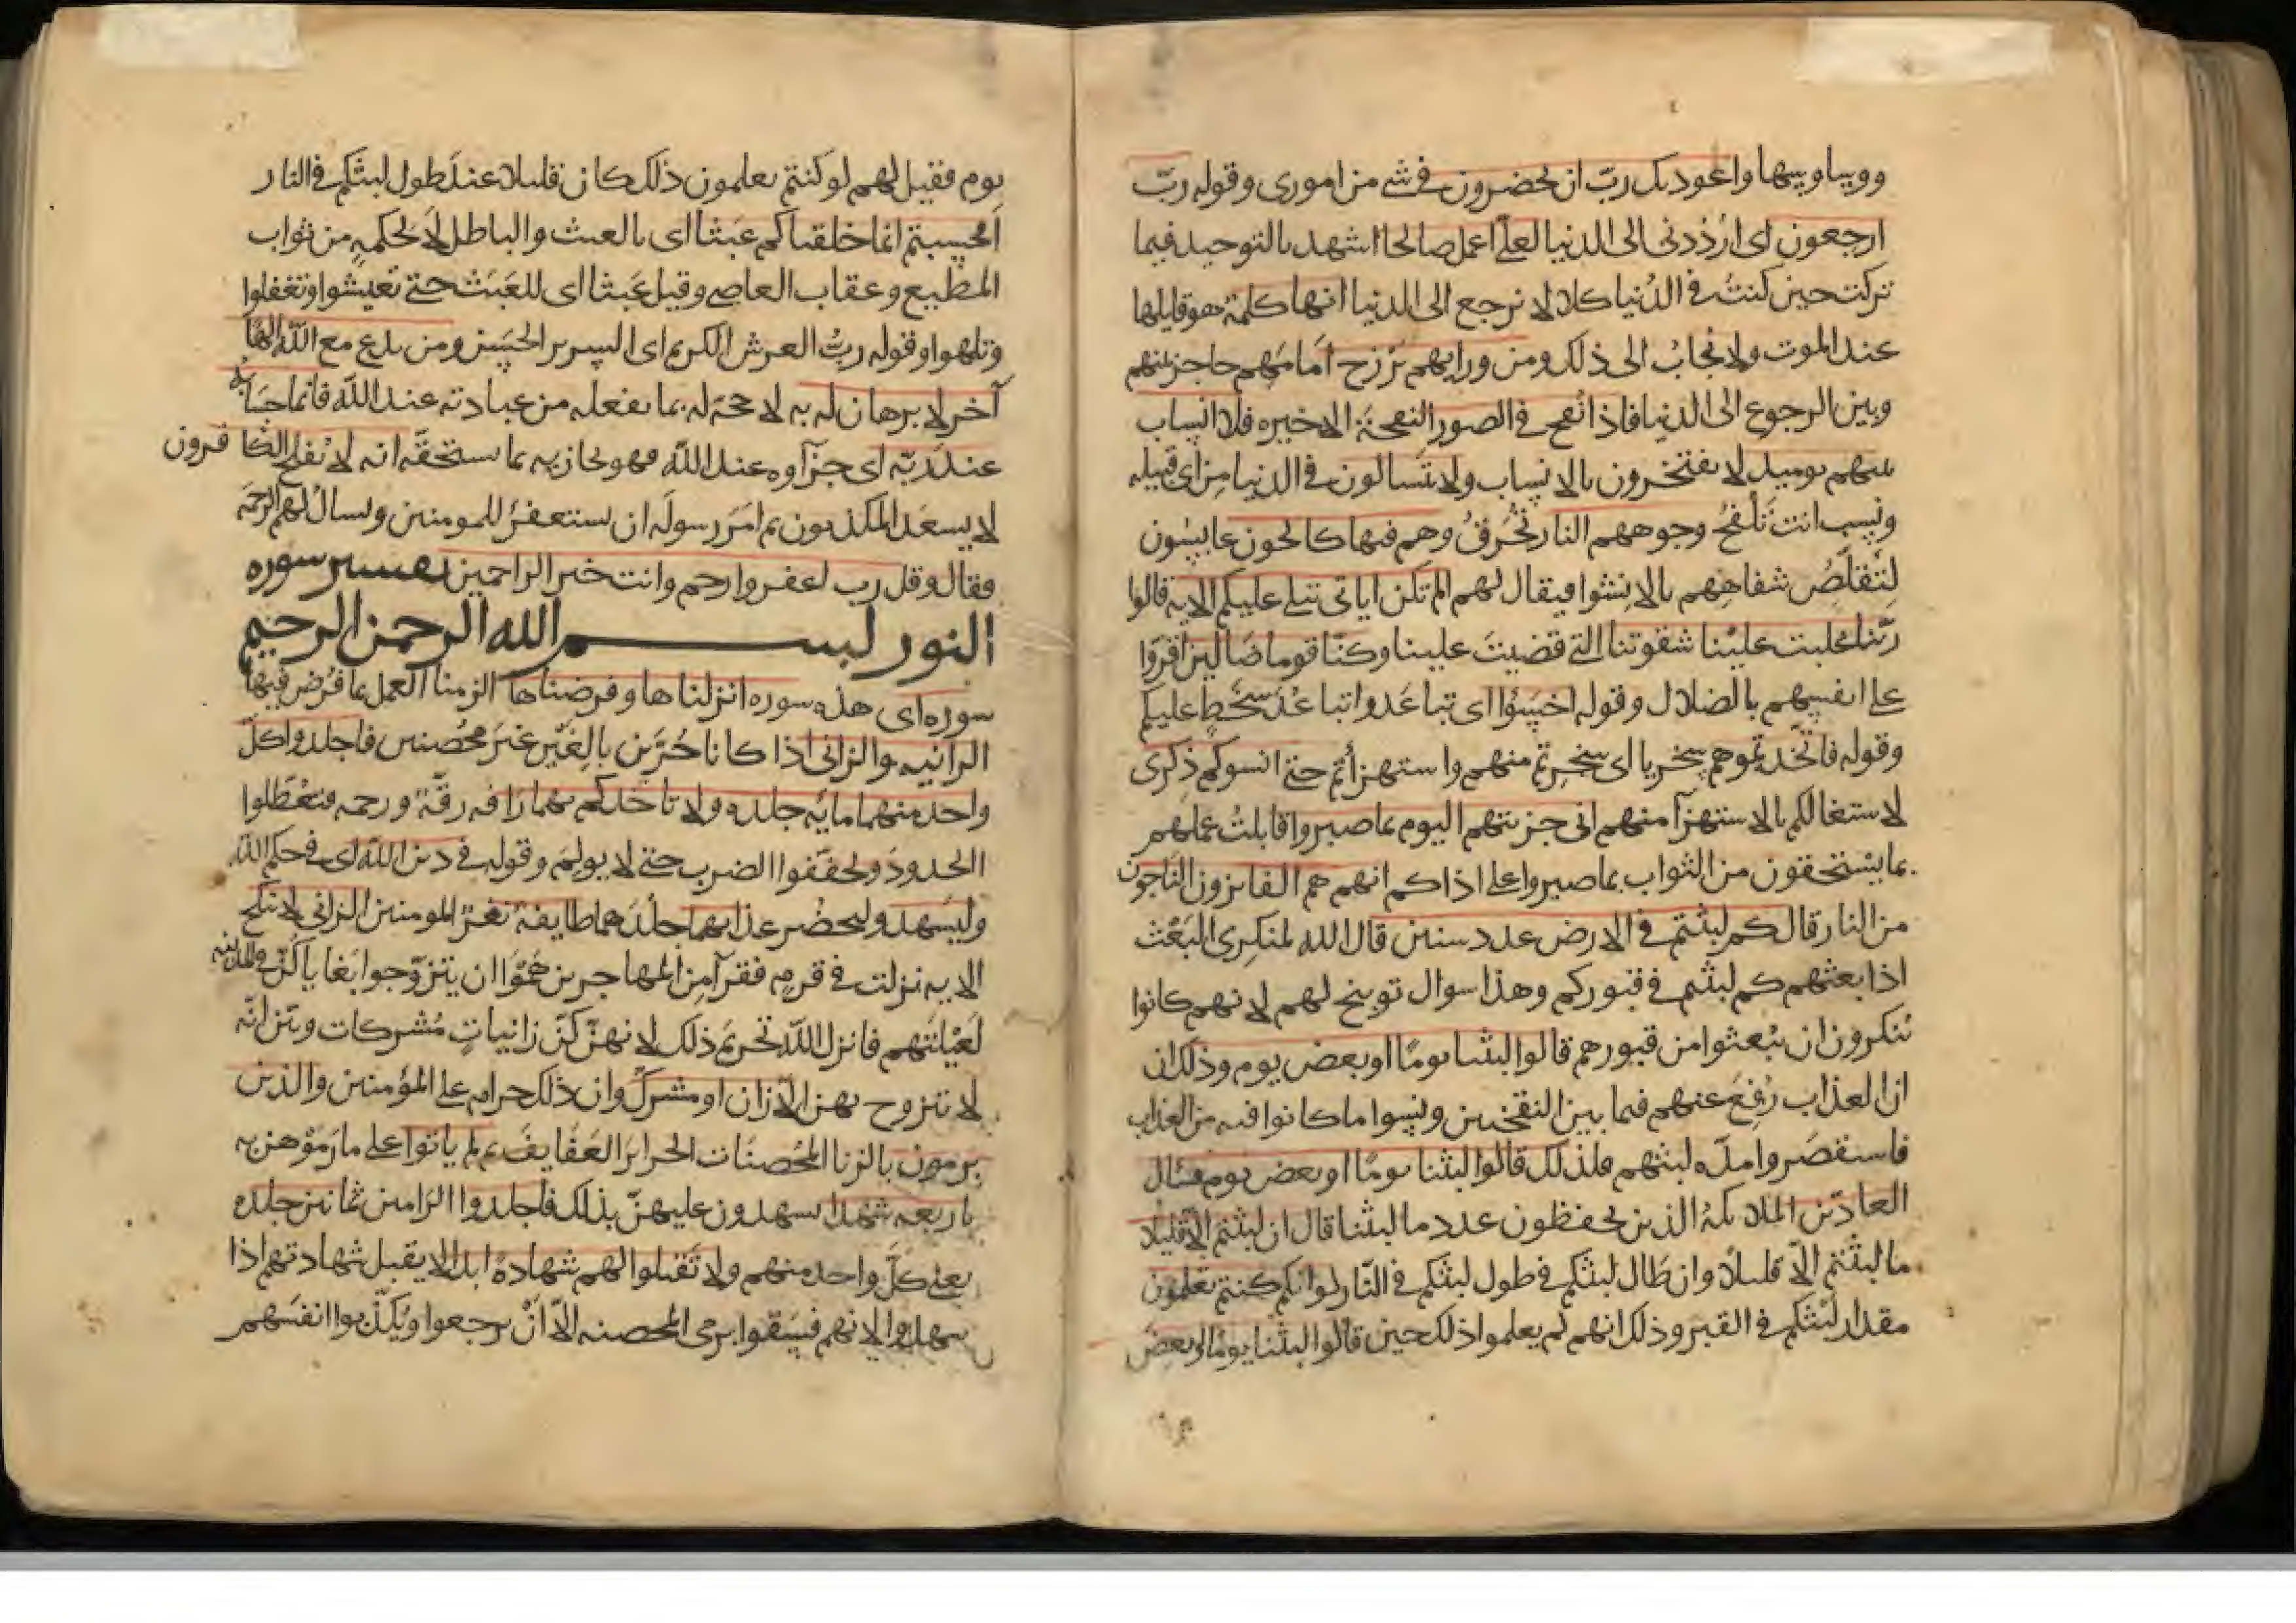 ووساوسها واعوذ بك ربّ ان يحضرون في شي من اموري وقوله ربّ
ارجعون اي ارْدُدني الى الدنيا لعلّي اعمل صالحا اشهد بالتوحيد فيما
تركت حين كنتُ في الدُنيا كلا لا نرجع الى الدنيا انها كلمة هو قايلها
عند الموت ولا يُجابُ الى ذلك ومن ورايهم بَرْزح امامَهم حاجز بينهم
وبين الرجوع الى الدنيا فاذا نُفخ في الصور النفخَة الاخيره فلا انساب
بينهم يوميد لا يفتخرون بالانساب ولا يتَسالون في الدنيا مِن اي قبيله
ونسب انت تَلْفحُ وجوههم النار تُحْرَقُ وهم فيها كالحون عابسُون
لِتَقَلّصُ شفاهِهم بالانشوا فيقال لهم الم تكن اياتي تتلى عليكم الايه قالوا
ربّنا غلبت عليْنا شقوتنا التي قضيتَ علينا وكنّا قوما ضَالين اقرّوا
على انفسِهم بالضلال وقوله اخسَؤُا اي تباعَدوا تباعُدَ سَخَطٍ عليكم
وقوله فاتّخذتموهم سِخريا اي سخِرتم منهم واستهزأتم حتى انسوكم ذِكرى
لاشتغالكم بالاستهزآ منهم اني جزيتهم اليوم بما صبروا قابلتُ عملهم
بما يسْتحقون من الثواب بما صبروا على اذاكم انهم هم الفايزون النّاجون
من النار قال كم لبثتم في الارض عدد سنين قال الله لمنكِرى البَعْث
اذا بعثهم كم لبثتم في قبوركم وهذا سوال توبيخ لهم لانهم كانوا
يُنكرون ان يُبْعثوا من قبورهم قالوا لبثنا يومًا او بعض يوم وذلك ان
ان العذاب رُفِعَ عنهم فيما بين النفختين ونِسوا ما كانوا فيه من العذاب
فاستقصَروا مدّه لبثهم فلذلك قالوا لبثنا يومًا او بعض يوم فسال
العادّين الملايكةُ الذين يحفظون عدد ما لبثنا قال ان لبثتم الّا قليلا
ما لبثتم الّا قليلًا وان طَال لبثكم في طول لبثكم في النّار لو انكم كنتم تعلمون
مقدار لَبْثكم في القبر وذلك انهم لم يعلموا ذلك حين قالوا لبثنا يومًا او بعضَ
يوم فقيل لهم لو كنتم تعلمون ذلك كان قليلا عندَ طول لبثكم في النار
افحسِبتم انما خلقناكم عَبَثا اي بالعبث والباطل لا لحكمهٍ من ثواب
المطيع وعقاب العاصي وقيل عَبثا اي للعَبَث حتى تعيشوا وتغفلوا
وتلهوا وقوله ربُّ العرش الكريم اي السرير الحَسَن ومن يدع مع اللّه الهًا
آخر لا برهان له به لا حجّة له بما يفعله من عبادته عند اللّه فانما حسَابه
عند ربّه اي جزآوه عند اللّه فهو يجازيه بما يستحقّه انه لا يُفلح الكافرون
لا يسعَد المكذبون ثم امَرَ رسولَه ان يستغفرَ للمومنين ويسالَ لهم الرحمَه
فقال وقل رب اغفر وارحم وانت خير الراحمين تفسير سوره
النور بسم الله الرحمن الرحيم
سوره اي هذه سوره انزلناها وفرضناها الزمنا العمل بما فُرض فيها
الزانيه والزاني اذا كانا حُرَّين بالِغَيْن غيرَ محْصَنين فاجلدوا كلّ
واحد منهما مايَه جلده ولا تاخذكم بهما رَافه رقّة ورحمه فتعطّلوا
الحدودَ وتخفّفوا الضرب حتى لا يولِمَ وقوله في دين اللّه اي في حكم اللّه
وليَشهد وليحضُر عذابهما جلْدَهما طايفة نفَرٌ من المومنين الزاني لا ينكح
الايه نزلت في قومٍ فقرآ مِن المهاجرين هَمّوا ان يتزوّجوا بَغايا كنّ في المدينه
لعَيْلتهم فانزل اللّه تحريمَ ذلك لانهنّ كنّ زانياتٍ مُشركات وبيّن انّه
لا يتزوج بهن الّا زانٍ او مشركٌ وان ذلك حرام على المؤمنين والذين
يرمون بالزنا المُحْصَنَات الحرايرَ العَفايفَ ثم لم ياتوا على مارَمَوْهن به
باربعه شهدا يشهدون عليهنّ بذلك فاجلدوا الرامين ثمانين جلده
يعني كلَّ واحد منهم ولا تقبلوا لهم شهادةً ابدا لا يقبل شهادتهم اذا
شهدوا لانهم فسَقوا برمى المحصنه الّا انْ يرجعوا ويُكذّبوا انفسَهم